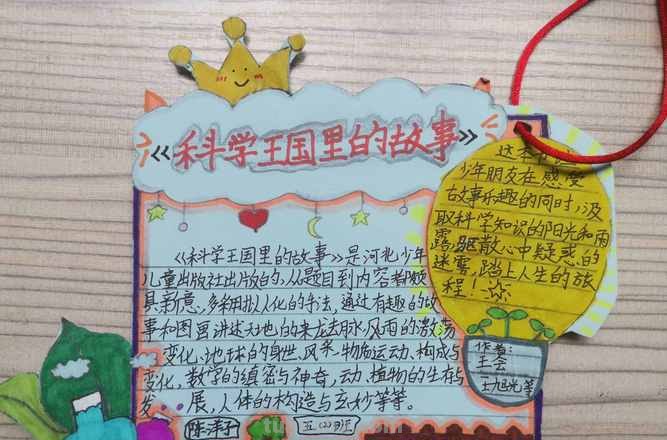 《科学王国里的故事》
《科学王国里的故事》是河北少年
儿童出版社出版的，从题目到内容都颇
具新意，多采用拟人化的手法，通过有趣的故
事和图画讲述天地的来龙去脉，风雨的激荡
变化，地球的身世、风采，物质运动、构成与
变化，数学的缜密与神奇，动、植物的生存与
发展，人体的构造与玄妙等等。
陈沣予
五(2)班
这本
少年朋友在感受
故事乐趣的同时，汲
取科学知识的阳光和雨
露，驱散心中疑惑的
迷雾，踏上人生的旅
程！
作者：
王会
等